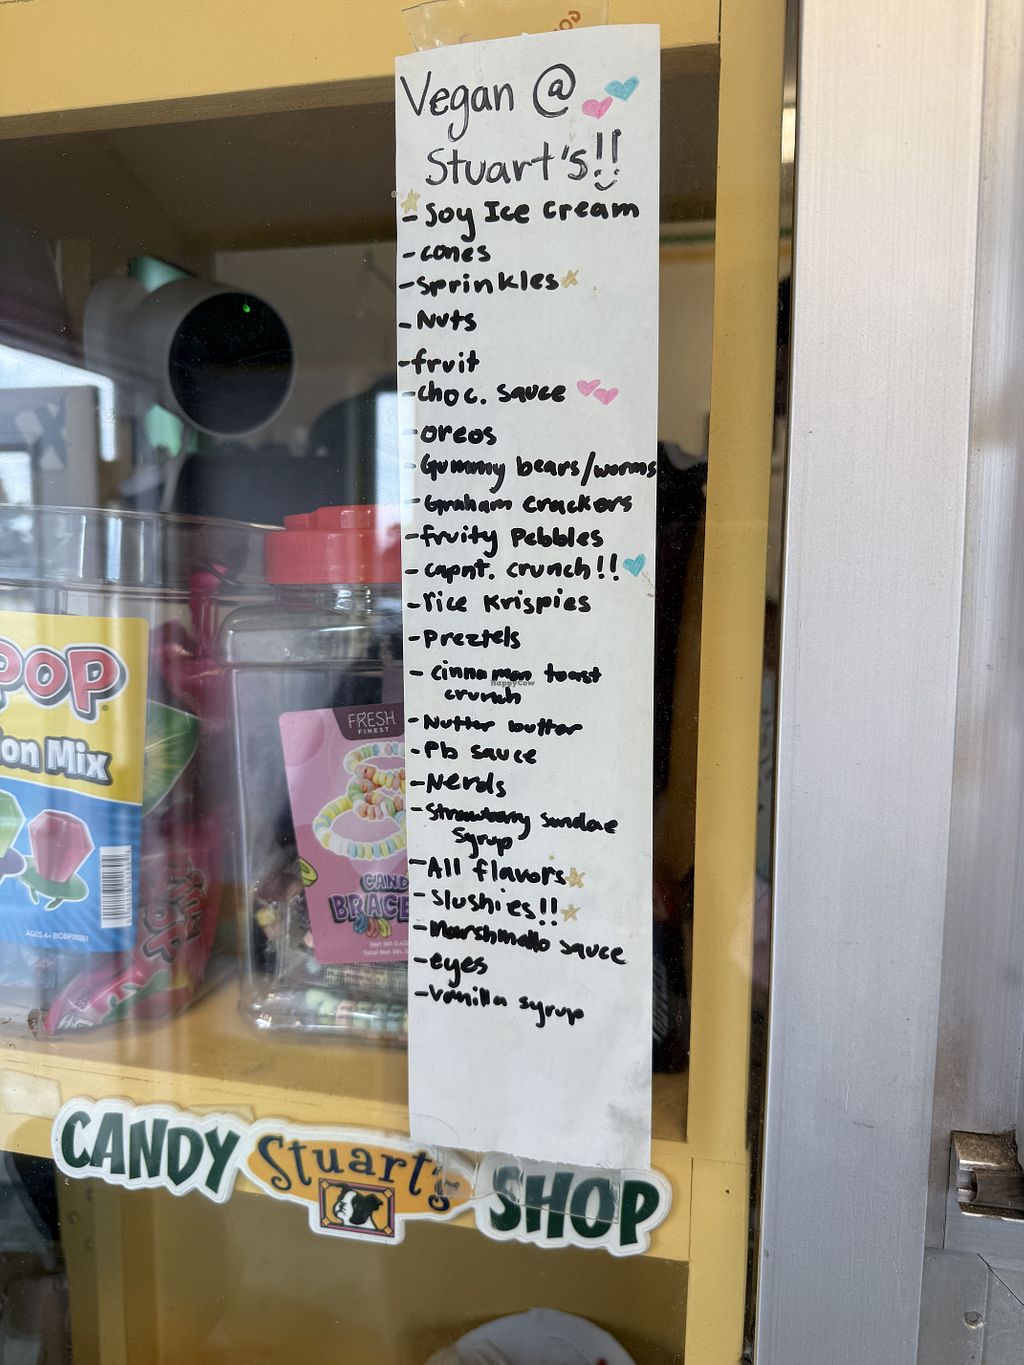 Vegan @
Stuart's!!
- Soy Ice Cream
- cones
- Sprinkles
- Nuts
- fruit
- choc. sauce
- oreos
- Gummy bears/worms
- Graham Crackers
- fruity Pebbles
- capnt. crunch!!
- rice Krispies
- Preztels
- cinnamon toast
crunch
- Nutter butter
- Pb sauce
- Nerds
- Strawberry Sundae
Syrup
- All flavors
- Slushies!!
- Marshmallo sauce
- eyes
- Vanilla syrup
HappyCow
POP
ion Mix
AGES 4+
FRESH
FINEST
CAND
BRACE
CANDY Stuart's SHOP